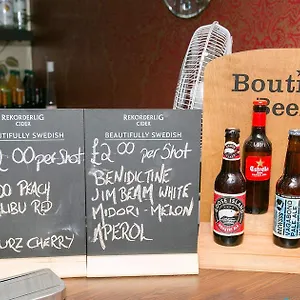 REKORDERLIG
CIDER
BEAUTIFULLY SWEDISH
£2.00 per SHOT
PEACH
RED
CHERRY
REKORDERLIG
CIDER
BEAUTIFULLY SWEDISH
£2.00 per SHOT
BENIDICTINE
JIM BEAM WHITE
MIDORI - MELON
APEROL
Bouti
Beer
GOOSE ISLAND
Estrella
VAGABOND
PALE ALE